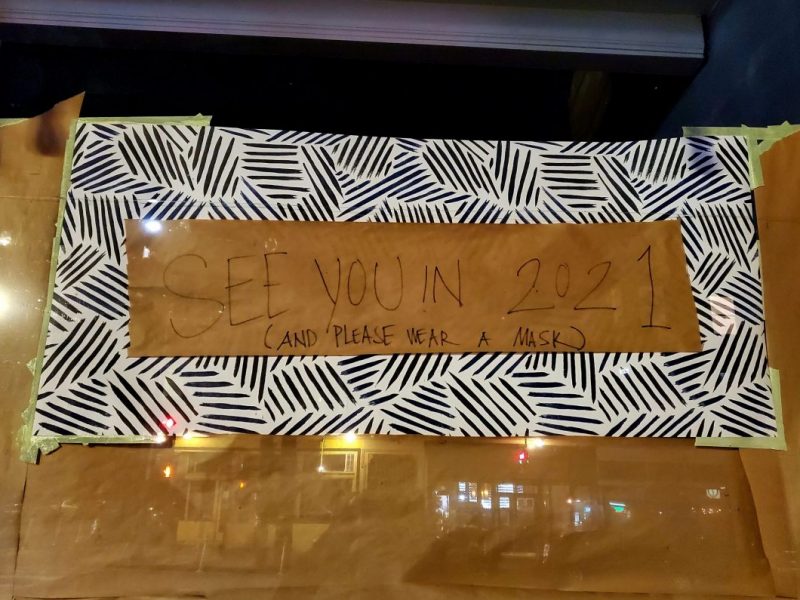 SEE YOU IN 2021
(AND PLEASE WEAR A MASK)